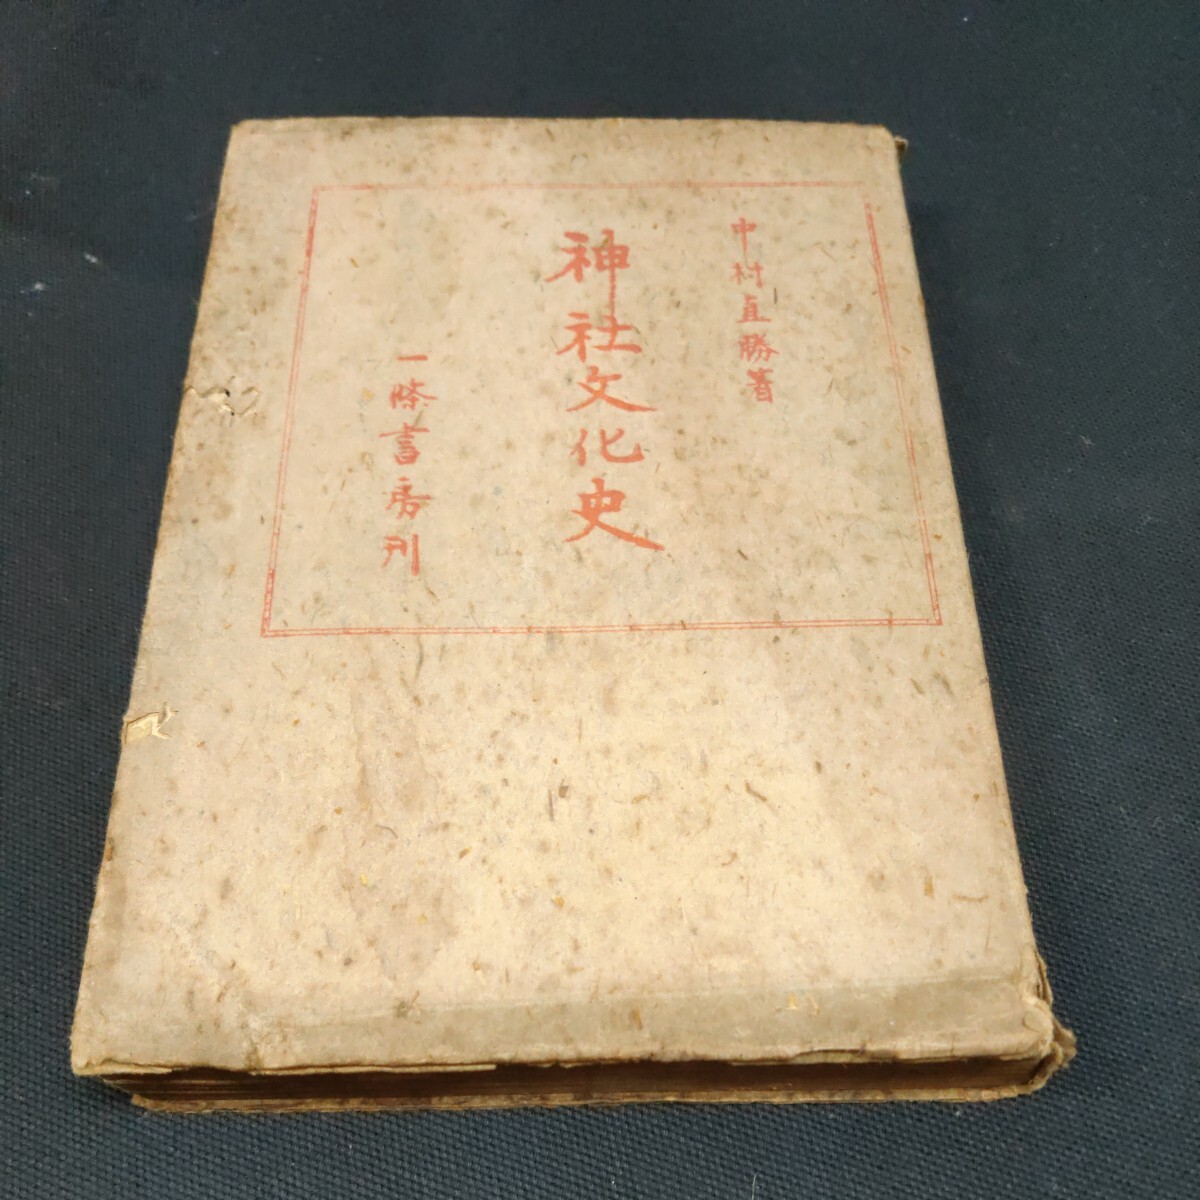 中村直勝著
神社文化史
一條書房刊